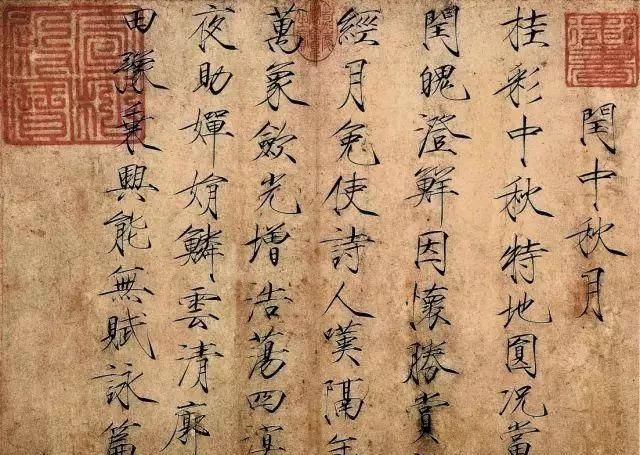 閏中秋月
桂彩中秋特地圓况當
閏魄澄鮮因懷勝賞
經月免使詩人嘆隔年
萬象歛光增浩蕩四溟
夜助嬋娟鱗雲清廓
田豫乘興能無賦詠篇